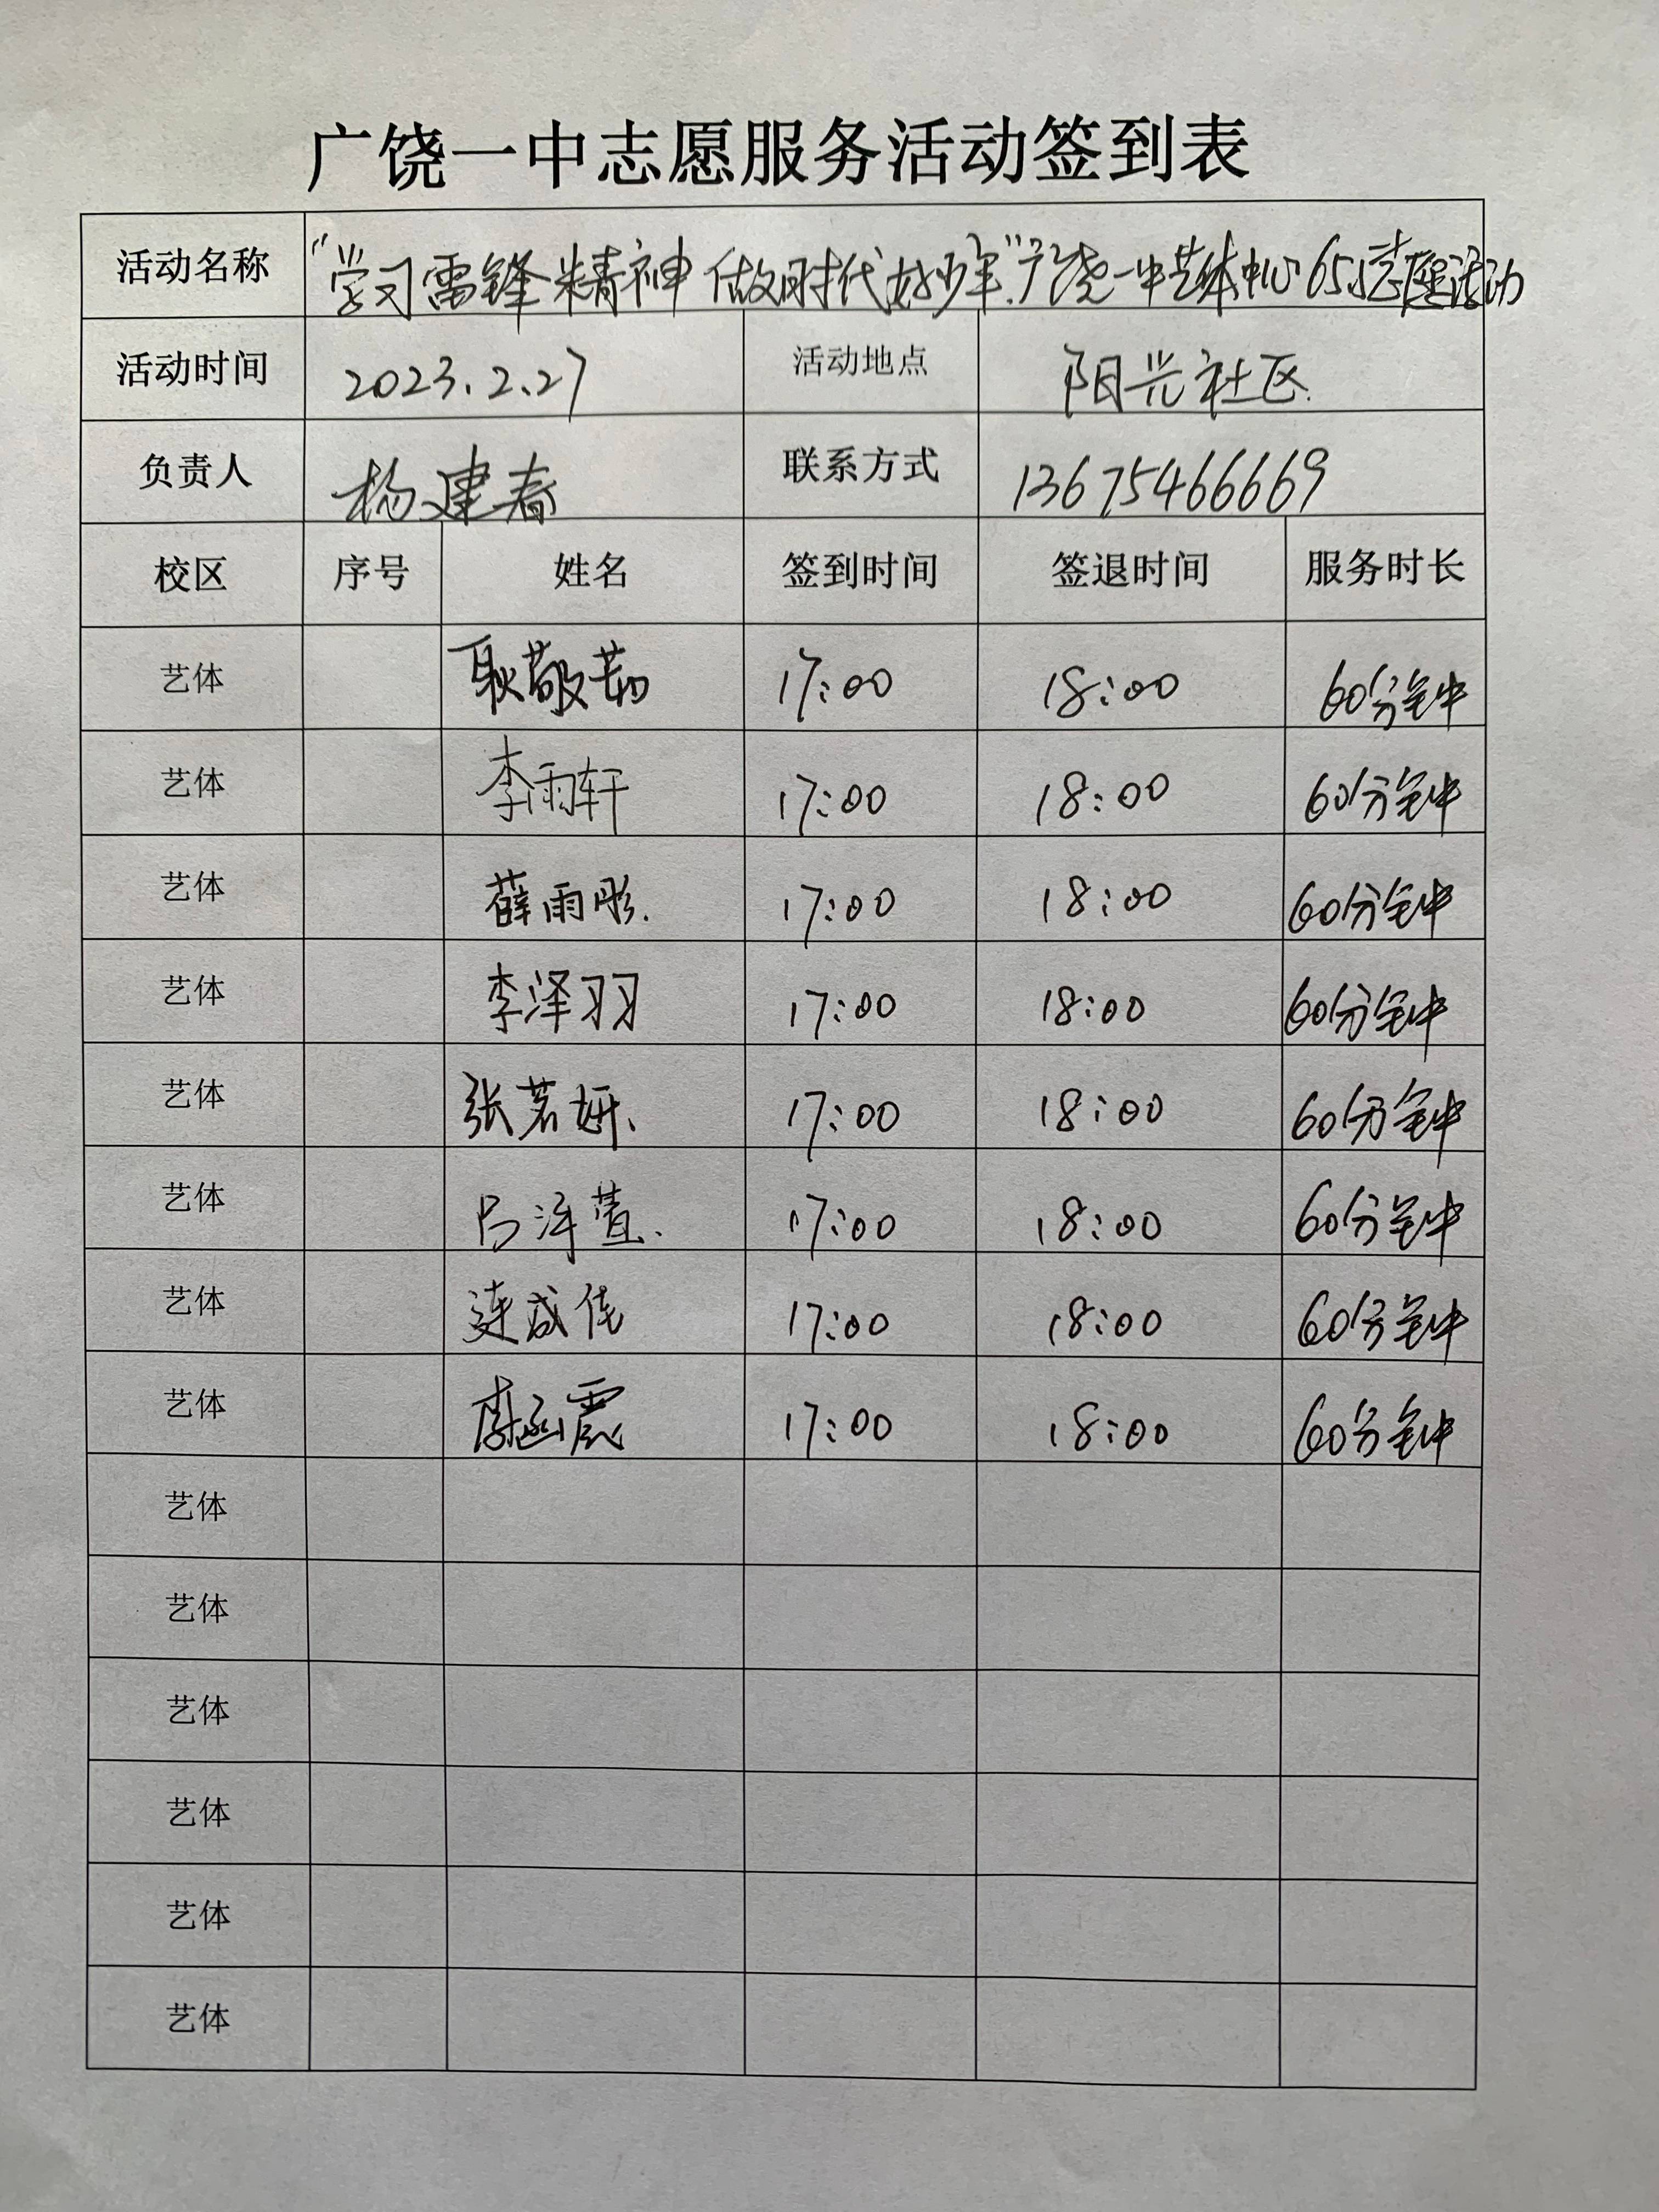 广饶一中志愿服务活动签到表
活动名称 "学习雷锋精神 做时代好少年"广饶一中艺体中心65志愿活动
活动时间 2023.2.27 活动地点 阳光社区
负责人 杨建春 联系方式 13675466669
校区 序号 姓名 签到时间 签退时间 服务时长
艺体 耿敬茹 17:00 18:00 60分钟
艺体 李雨轩 17:00 18:00 60分钟
艺体 薛雨彤 17:00 18:00 60分钟
艺体 李泽羽 17:00 18:00 60分钟
艺体 张茗妍 17:00 18:00 60分钟
艺体 吕泽萱 17:00 18:00 60分钟
艺体 连成佳 17:00 18:00 60分钟
艺体 李函霓 17:00 18:00 60分钟
艺体
艺体
艺体
艺体
艺体
艺体